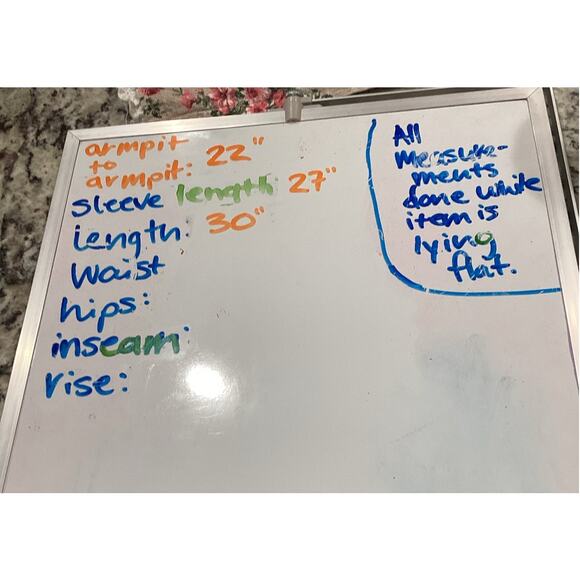 armpit
to
armpit: 22"
sleeve length: 27"
length: 30"
Waist
hips:
inseam:
rise:
All
Measure-
ments
done while
item is
lying
flat.